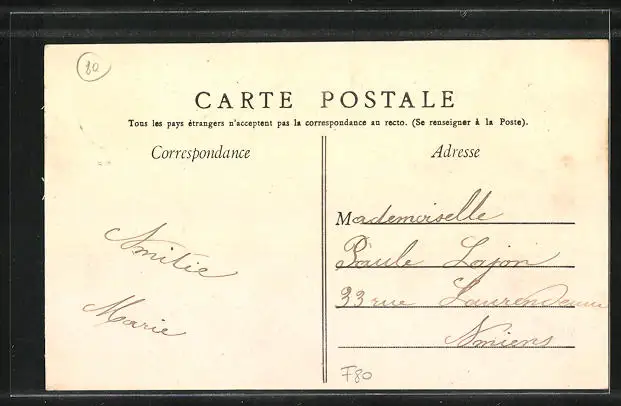 80
CARTE POSTALE
Tous les pays étrangers n'acceptent pas la correspondance au recto. (Se renseigner à la Poste).
Correspondance
Adresse
Mademoiselle
Paule Lajon
33 rue Laurendeau
Amiens
Amitié
Marie
F80